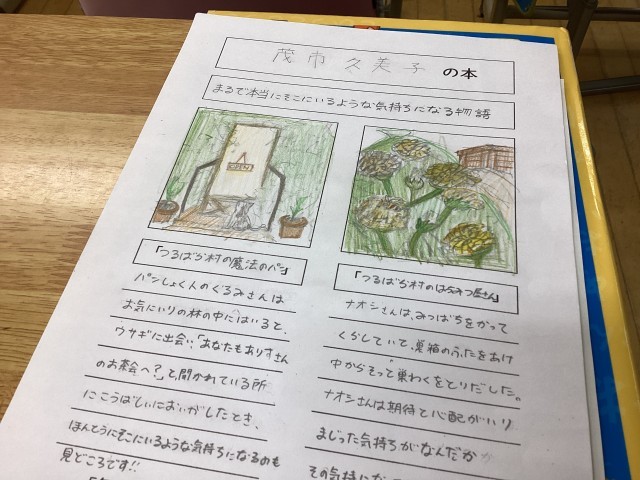 茂市久美子の本
まるで本当にそこにいるような気持ちになる物語
「つるばら村の魔法のパン」
パンしょく人のくるみさんは
お気にいりの林の中にはいると、
ウサギに出会い、「あなたもありすさん
のお茶会へ?」と聞かれている所
にこうばしいにおいがしたとき、
ほんとうにそこにいるような気持ちになるのも
見どころです!!
「つるばら村のはちみつ屋さん」
ナオシさんは、みつばちをかって
くらしていて、巣箱のふたをあけ
中からそっと巣わくをとりだした。
ナオシさんは期待と心配がいり
まじった気持ちがなんだか
その気持に